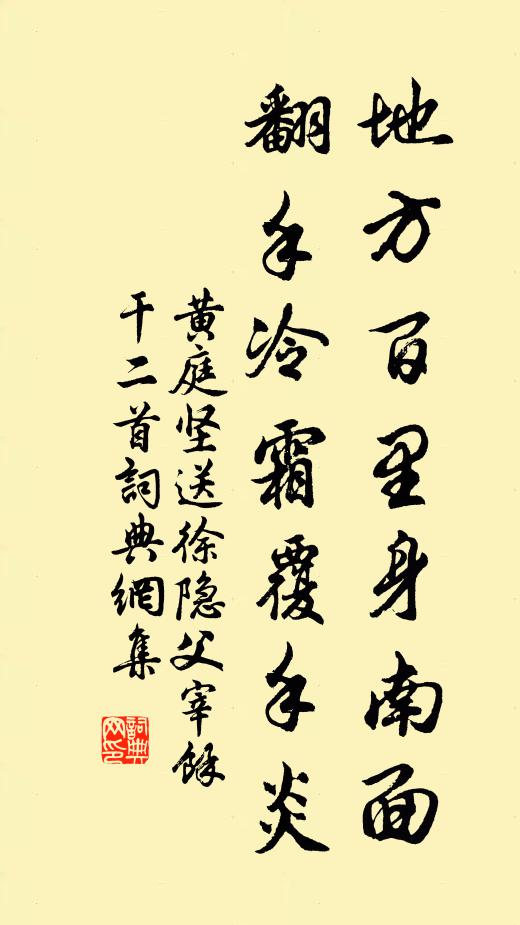 地方百里身南面
翻手冷霜覆手炎
黄庭坚送徐隐父宰馀
干二首詞典網集
詞典網印